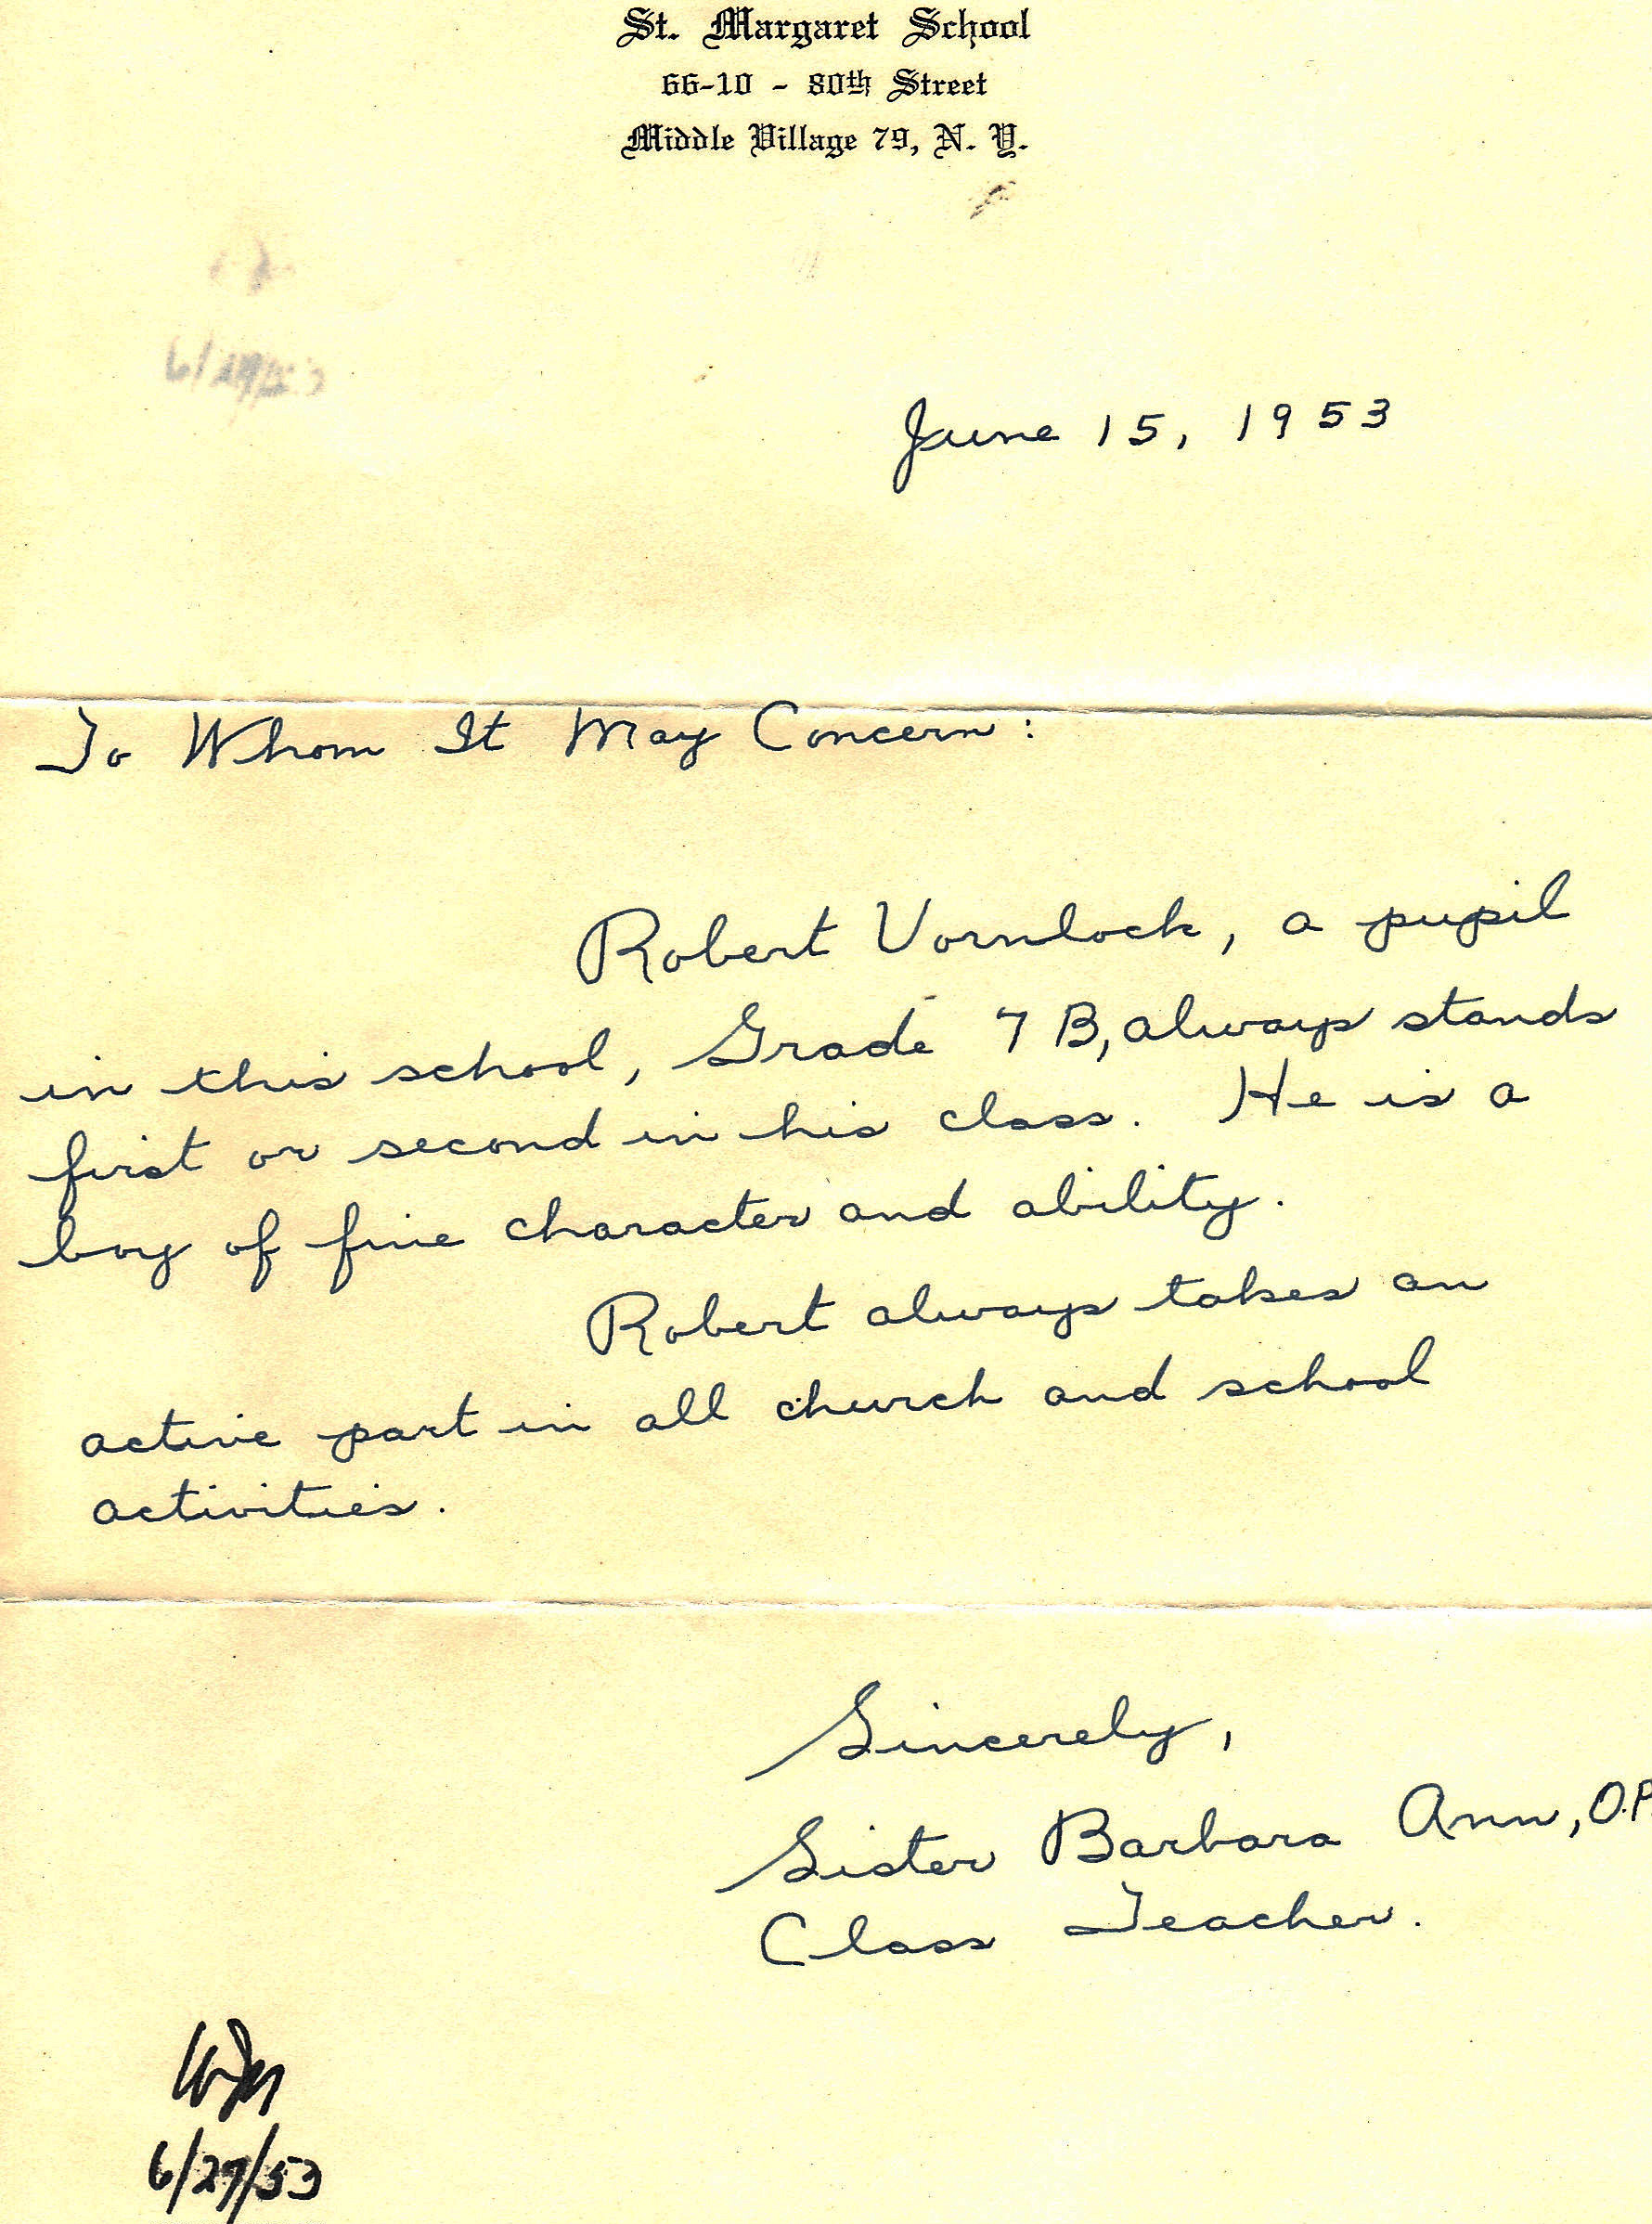 St. Margaret School
66-10 - 80th Street
Middle Village 79, N. Y.
June 15, 1953
To Whom It May Concern:
Robert Vornlock, a pupil
in this school, Grade 7B, always stands
first or second in his class. He is a
boy of fine character and ability.
Robert always takes an
active part in all church and school
activities.
Sincerely,
Sister Barbara Ann, O.P.
Class Teacher.
6/29/53